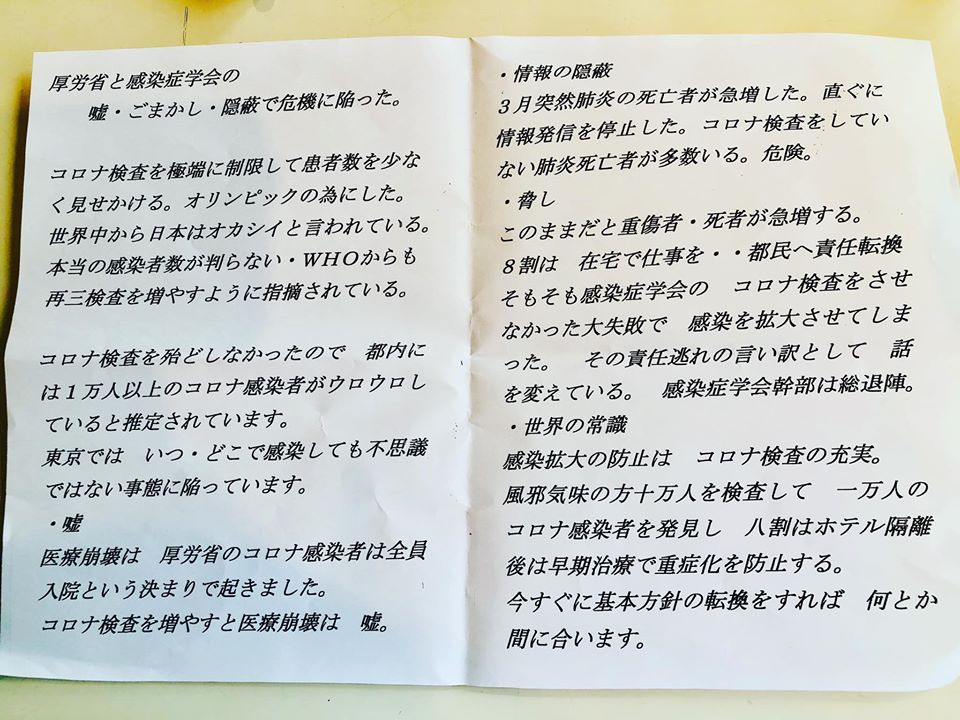 厚労省と感染症学会の
嘘・ごまかし・隠蔽で危機に陥った。
コロナ検査を極端に制限して患者数を少な
く見せかける。オリンピックの為にした。
世界中から日本はオカシイと言われている。
本当の感染者数が判らない・WHOからも
再三検査を増やすように指摘されている。
コロナ検査を殆どしなかったので　都内に
は１万人以上のコロナ感染者がウロウロし
ていると推定されています。
東京では　いつ・どこで感染しても不思議
ではない事態に陥っています。
・嘘
医療崩壊は　厚労省のコロナ感染者は全員
入院という決まりで起きました。
コロナ検査を増やすと医療崩壊は　嘘。
・情報の隠蔽
３月突然肺炎の死亡者が急増した。直ぐに
情報発信を停止した。コロナ検査をしてい
ない肺炎死亡者が多数いる。危険。
・脅し
このままだと重傷者・死者が急増する。
８割は　在宅で仕事を・・都民へ責任転換
そもそも感染症学会の　コロナ検査をさせ
なかった大失敗で　感染を拡大させてしま
った。　その責任逃れの言い訳として　話
を変えている。　感染症学会幹部は総退陣。
・世界の常識
感染拡大の防止は　コロナ検査の充実。
風邪気味の方十万人を検査して　一万人の
コロナ感染者を発見し　八割はホテル隔離
後は早期治療で重症化を防止する。
今すぐに基本方針の転換をすれば　何とか
間に合います。